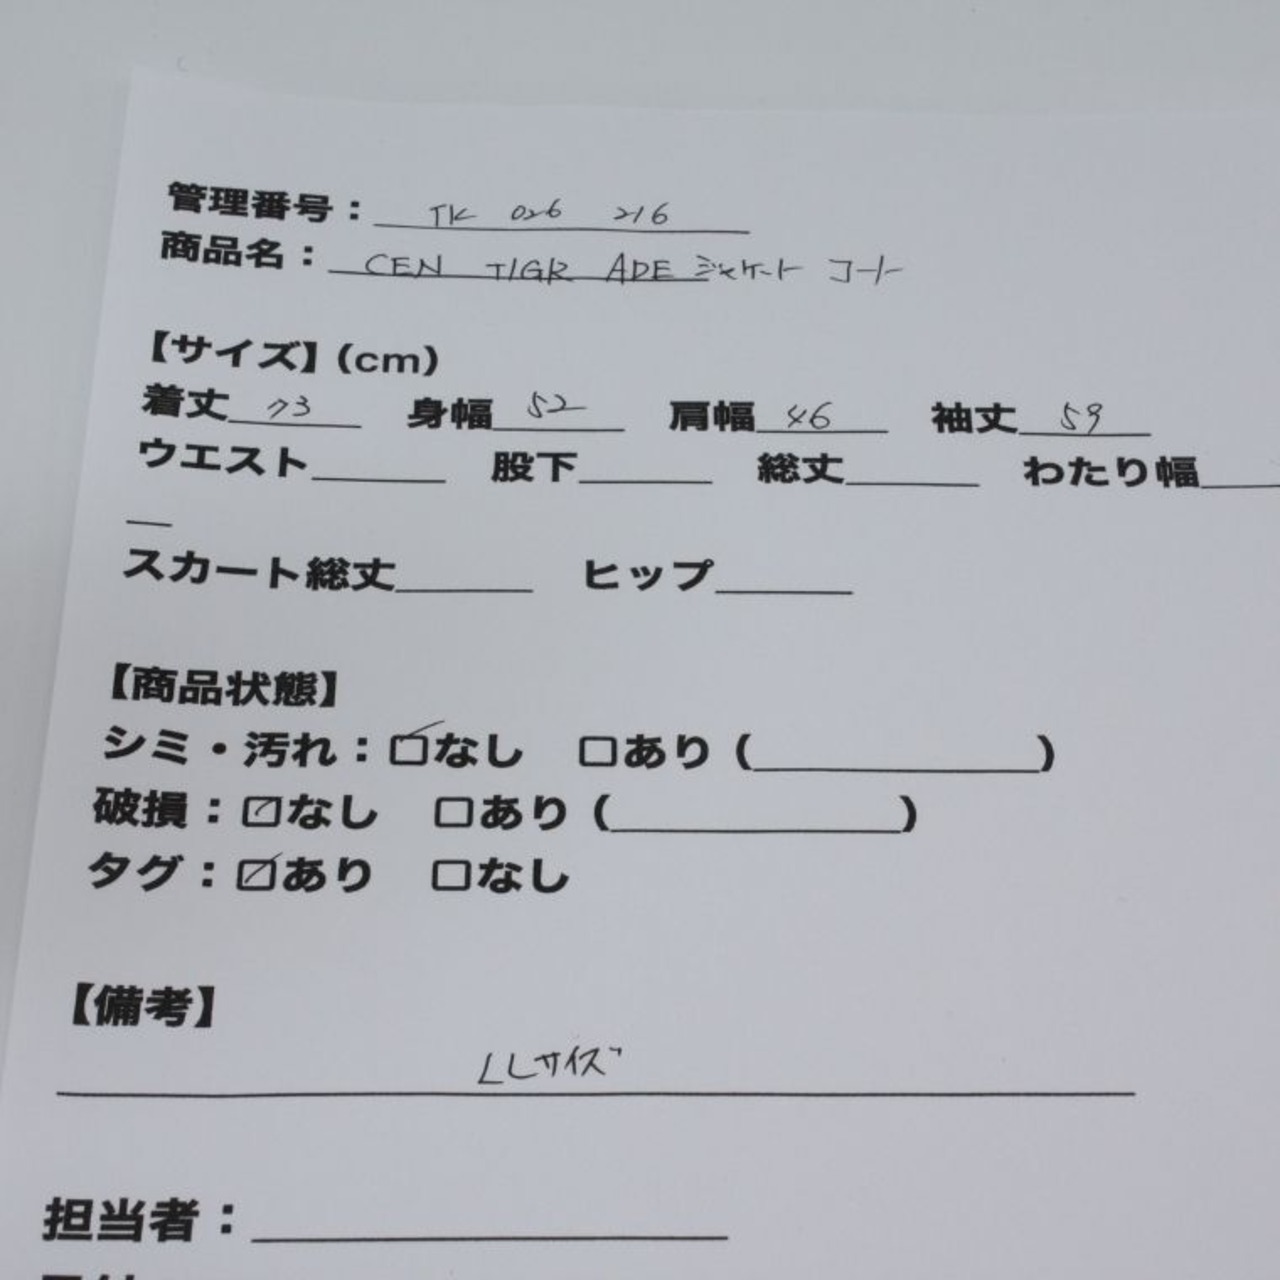 管理番号：TK 026 216
商品名：CEN TIGR ADE ジャケート コート
【サイズ】(cm)
着丈 73 身幅 52 肩幅 46 袖丈 59
ウエスト＿＿ 股下＿＿ 総丈＿＿ わたり幅＿＿
スカート総丈＿＿ ヒップ＿＿
【商品状態】
シミ・汚れ：☑なし □あり（＿＿＿＿）
破損：☑なし □あり（＿＿＿＿）
タグ：☑あり □なし
【備考】
LLサイズ
担当者：